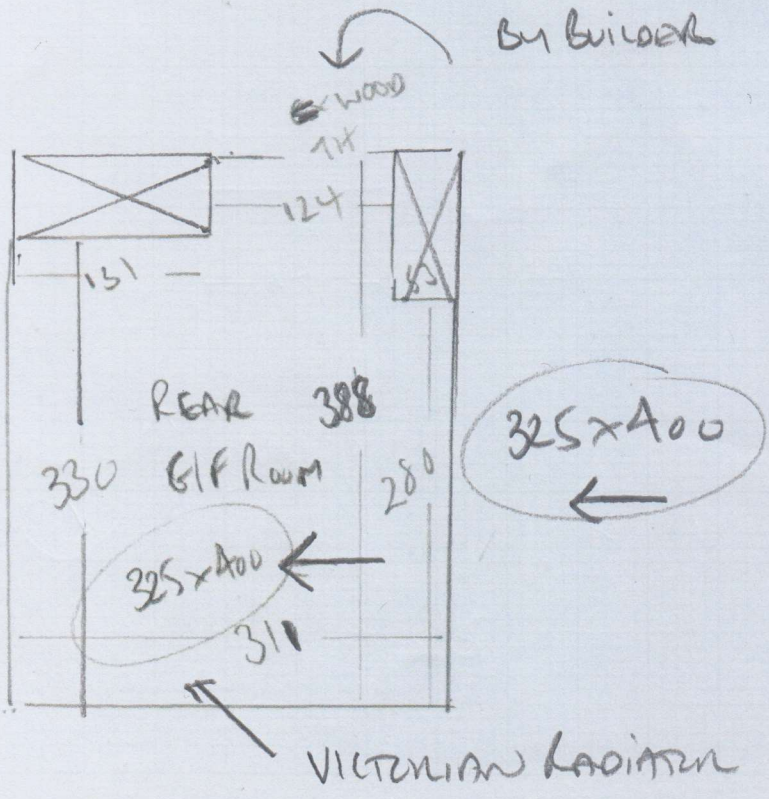 BY BUILDER
WOOD
124
131
REAR 388
330 G/F ROOM 280
325 x 400
325 x 400
311
VICTORIAN RADIATOR